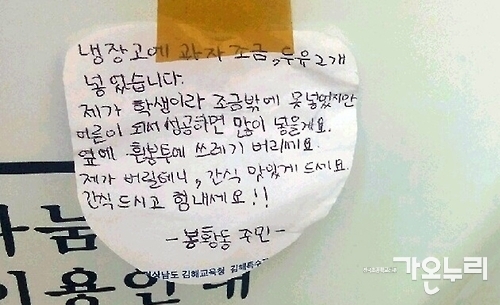 냉장고에 과자 조금, 두유 2개
넣었습니다.
제가 학생이라 조금밖에 못넣었지만
어른이 되서 성공하면 많이 넣을게요.
옆에 흰봉투에 쓰레기 버리세요.
제가 버릴테니, 간식 맛있게 드세요.
간식 드시고 힘내세요!!
-봉황동 주민-
경상남도 김해교육청 김해특수
나눔
이용안내
가온누리